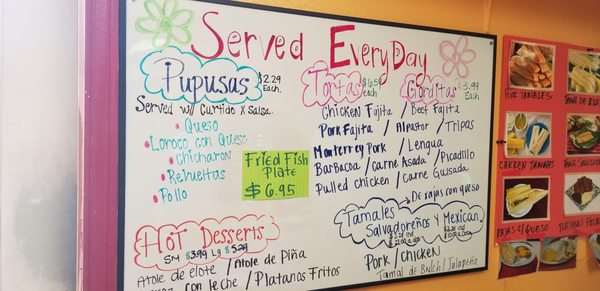 Served EveryDay
Pupusas $2.29
Each
Served w/ Curtido x Salsa
• Queso
• Loroco con Queso
• chicharon
• Revueltas
• Pollo
Tortas
each
Gorditas $3.99
ea
Chicken Fajita / Beef Fajita
Pork Fajita / Alpastor / Tripas
Monterrey Pork / Lengua
Barbacoa / Carne Asada / Picadillo
Pulled chicken / Carne Guisada
Fried Fish
Plate
$6.95
→ De rajas con queso
Tamales
Salvadoreños y Mexican
Pork / Chicken
Tamal de Jalapeño
Hot Desserts
SM $3.99 Lg $5.29
Atole de elote / Atole de Piña
con leche / Platanos Fritos
PORK TAMALES
CHICKEN TAMALES
RAJAS Y QUESO